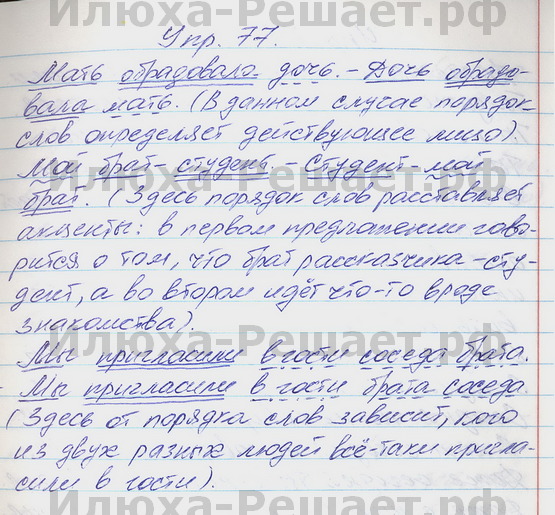 Илюха-Решает.рф
Упр. 77.
Мать обрадовала дочь. - Дочь обрадо-
вала мать. (В данном случае порядок
слов определяет действующее лицо).
Мой брат - студент. - Студент - мой
Илюха-Решает.рф
брат. (Здесь порядок слов расставляет
акценты: в первом предложении гово-
рится о том, что брат рассказчика - сту-
дент, а во втором идёт что-то вроде
знакомства).
Илюха-Решает.рф
Мы пригласили в гости соседа брата.
- Мы пригласили в гости брата соседа.
(Здесь от порядка слов зависит, кого
из двух разных людей всё-таки пригла-
сили в гости).
Илюха-Решает.рф